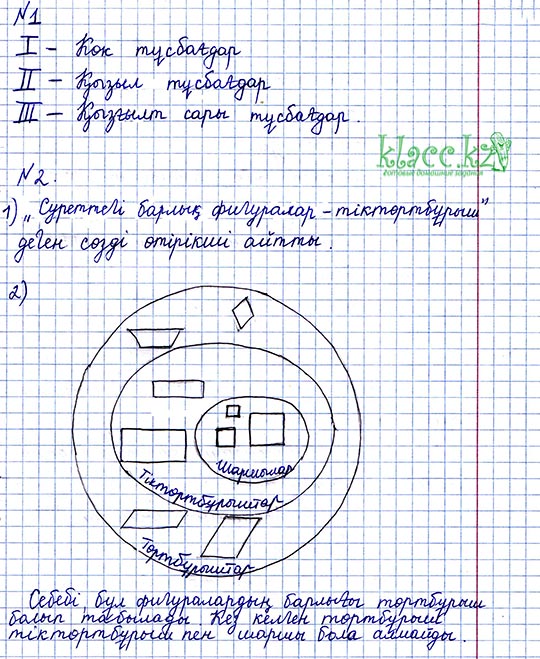 №1
I – Көк тұсбағдар
II – Қызыл тұсбағдар
III – Қызғылт сары тұсбағдар.
klacc.kz
готовые домашние задания
№2.
1) „Суреттегі барлық фигуралар – тіктөртбұрыш"
деген сөзді өтірікші айтты.
2)
Шаршылар
Тіктөртбұрыштар
Төртбұрыштар
Себебі бұл фигуралардың барлығы төртбұрыш
болып табылады. Кез келген төртбұрыш
тіктөртбұрыш пен шаршы бола алмайды.